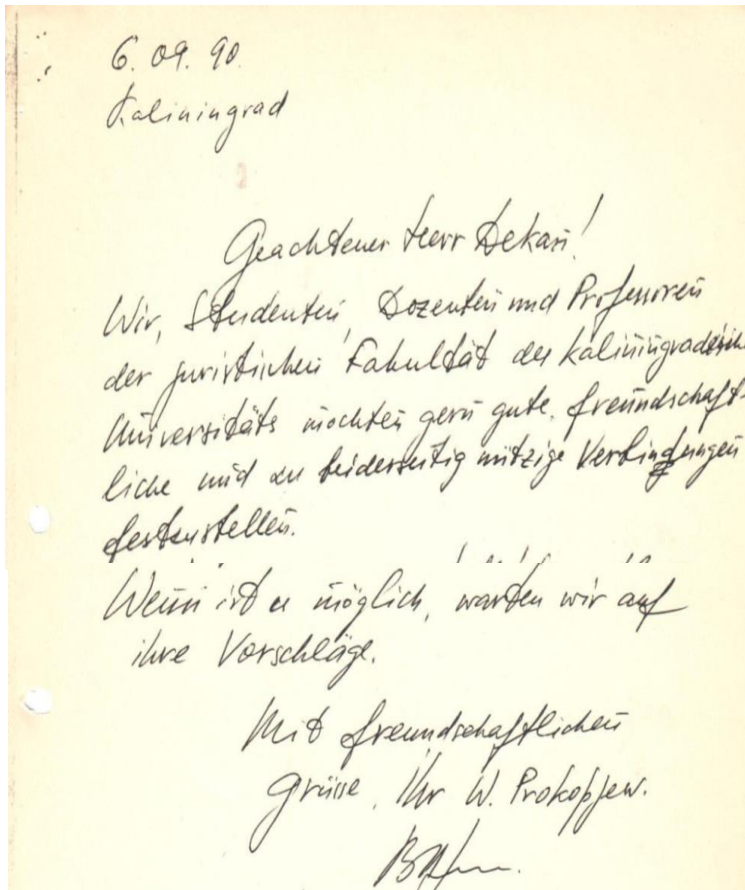 6.09.90.
Kaliningrad
Geachtener Herr Dekan!
Wir, Studenten, Dozenten und Professoren
der juristischen Fakultät der kaliningradische
Universitäts möchten gern gute, freundschaft-
liche und zu beiderseitig nützige Verbindungen
festzustellen.
Wenn ist es möglich, warten wir auf
ihre Vorschläge.
Mit freundschaftlichen
Grüsse, Ihr W. Prokopjew.